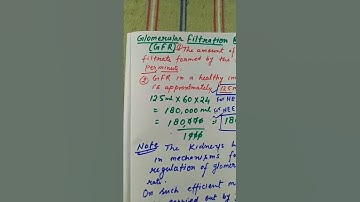 Glomerular Filtration
(GFR) The amount of
filtrate formed by the
per minute
GFR in a healthy in
is approximately 125 m
125 ml X 60 X 24
= 180,000 ml
= 180,000
1000
= 180
Note The Kidneys h
in mechanisms fo
regulation of glome
rate.
On such efficient m
carried out by